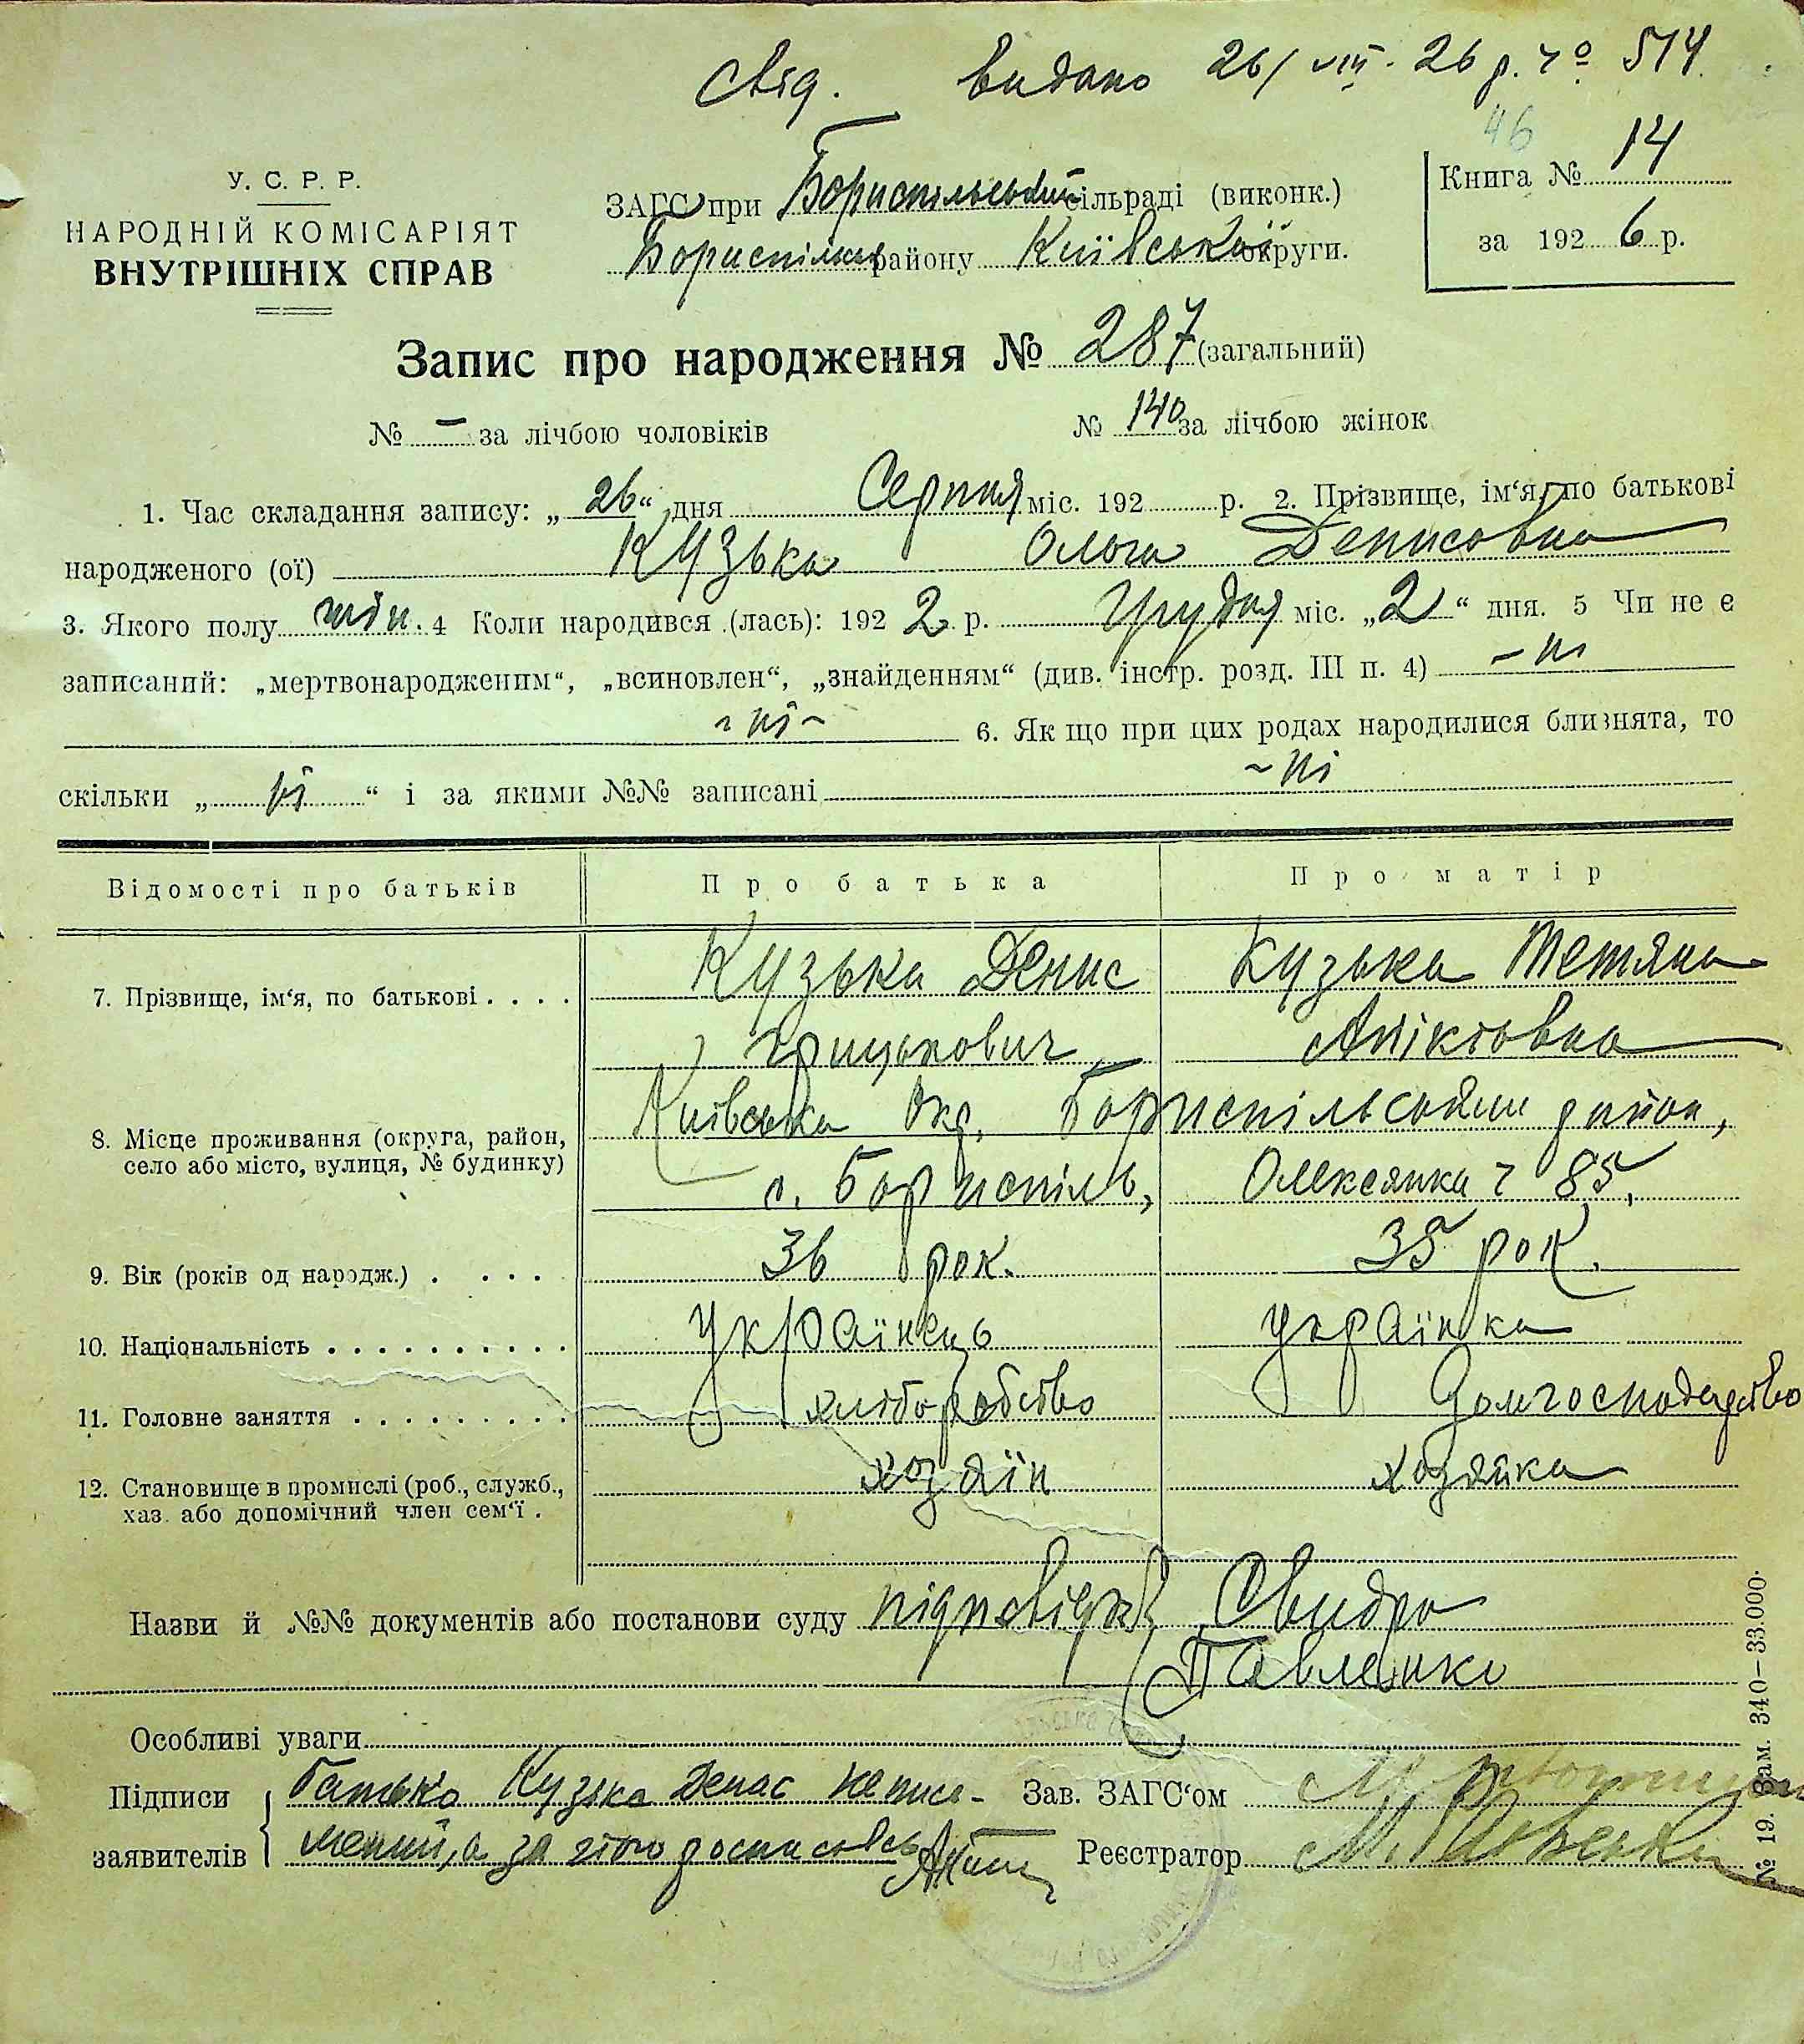 свід. видано 26/VIII. 26 р. чо 514.
46
У. С. Р. Р.
НАРОДНІЙ КОМІСАРІЯТ
ВНУТРІШНІХ СПРАВ
ЗАГС при Бориспільській сільраді (виконк.)
Бориспільск району Київської округи.
Книга № 14
за 192 6 р.
Запис про народження № 287 (загальний)
№ – за лічбою чоловіків № 140 за лічбою жінок
1. Час складання запису: „26“ дня Серпня міс. 192 р. 2. Прізвище, ім‘я, по батькові
народженого (ої) Кузька Ольга Денисовна
3. Якого полу жін. 4 Коли народився (лась): 192 2 р. Грудня міс. „2“ дня. 5 Чи не є
записаний: „мертвонародженим“, „всиновлен“, „знайденням“ (див. інстр. розд. III п. 4) – ні
~ ні ~ 6. Як що при цих родах народилися близнята, то
скільки „ ні “ і за якими №№ записані ~ ні
Відомості про батьків Про батька Про матір
7. Прізвище, ім‘я, по батькові . . . . Кузька Денис Кузька Тетяна
Грицькович Анікіовна
8. Місце проживання (округа, район, Київська Окр. Бориспільський район,
село або місто, вулиця, № будинку) с. Бориспіль, Олексянка ч 85.
9. Вік (років од народж.) . . . . 36 рок. 35 рок.
10. Національність . . . . . . . . . . Українець Українка
11. Головне заняття . . . . . . . . . хліборобство Домгосподарство
12. Становище в промислі (роб., служб., хозяїн хозяйка
хаз. або допомічний член сем‘ї .
Назви й №№ документів або постанови суду Свидро
Павленко
Особливі уваги
Підписи батько Кузька Денис неписе- Зав. ЗАГС‘ом
заявителів менний, а за його росписався Реєстратор
№ 19. Зам. 340–33.000.